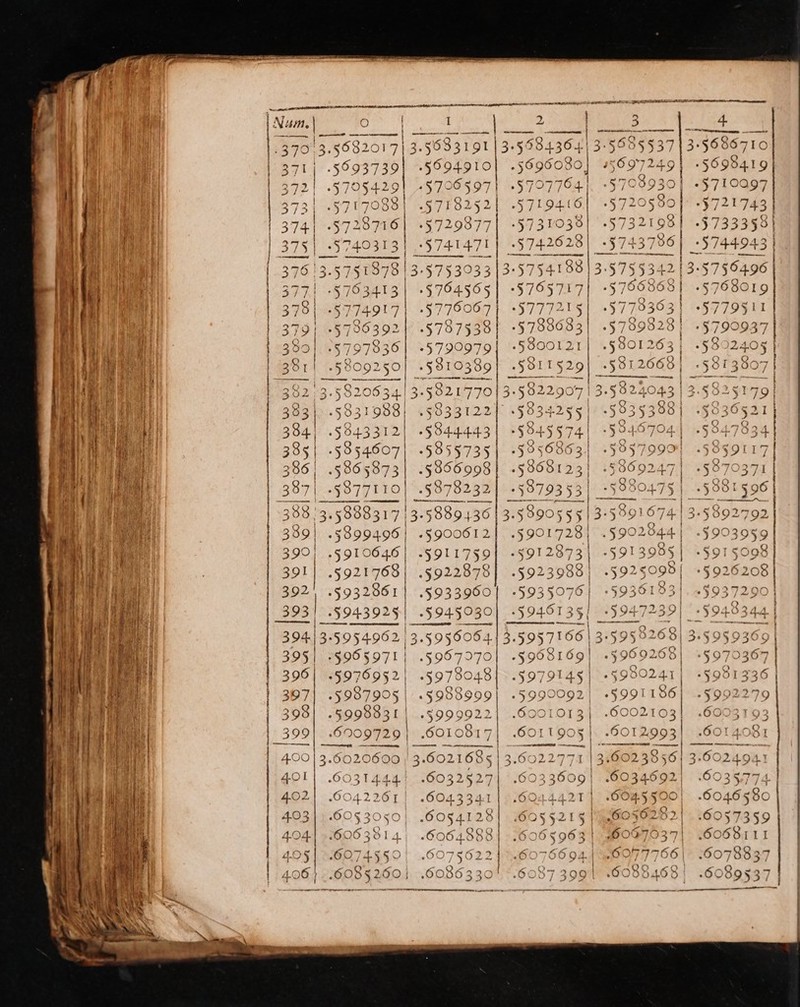 Num. 0 1 2 3 4
370 3.5682017 3.5683191 3.5684364 3.5685537 3.5686710
371 .5693739 .5694910 .5696080 .5697249 .5698419
372 .5705429 .5706597 .5707764 .5708930 .5710097
373 .5717088 .5718252 .5719416 .5720580 .5721743
374 .5728716 .5729877 .5731038 .5732198 .5733358
375 .5740313 .5741471 .5742628 .5743786 .5744943
376 3.5751878 3.5753033 3.5754188 3.5755342 3.5756496
377 .5763413 .5764565 .5765717 .5766868 .5768019
378 .5774917 .5776067 .5777215 .5778363 .5779511
379 .5786392 .5787538 .5788683 .5789828 .5790937
380 .5797836 .5790979 .5800121 .5801263 .5802405
381 .5809250 .5810389 .5811529 .5812668 .5813807
382 3.5820634 3.5821770 3.5822907 3.5824043 3.5825179
383 .5831988 .5833122 .5834255 .5835388 .5836521
384 .5843312 .5844443 .5845574 .5846704 .5847834
385 .5854607 .5855735 .5856863 .5857990 .5859117
386 .5865873 .5866998 .5868123 .5869247 .5870371
387 .5877110 .5878232 .5879353 .5880475 .5881596
388 3.5888317 3.5889436 3.5890555 3.5891674 3.5892792
389 .5899496 .5900612 .5901728 .5902844 .5903959
390 .5910646 .5911759 .5912873 .5913985 .5915098
391 .5921768 .5922878 .5923988 .5925098 .5926208
392 .5932861 .5933960 .5935076 .5936183 .5937290
393 .5943925 .5945030 .5946135 .5947239 .5948344
394 3.5954962 3.5956064 3.5957166 3.5958268 3.5959369
395 .5965971 .5967070 .5968169 .5969268 .5970367
396 .5976952 .5978048 .5979145 .5980241 .5981336
397 .5987905 .5988999 .5990092 .5991186 .5992279
398 .5998831 .5999922 .6001013 .6002103 .6003193
399 .6009729 .6010817 .6011905 .6012993 .6014081
400 3.6020600 3.6021685 3.6022771 3.6023856 3.6024941
401 .6031444 .6032527 .6033609 .6034692 .6035774
402 .6042261 .6043341 .6044421 .6045500 .6046580
403 .6053050 .6054128 .6055215 .6056282 .6057359
404 .6063814 .6064888 .6065963 .6067037 .6068111
405 .6074550 .6075622 .6076694 .6077766 .6078837
406 .6085260 .6086330 .6087399 .6088468 .6089537